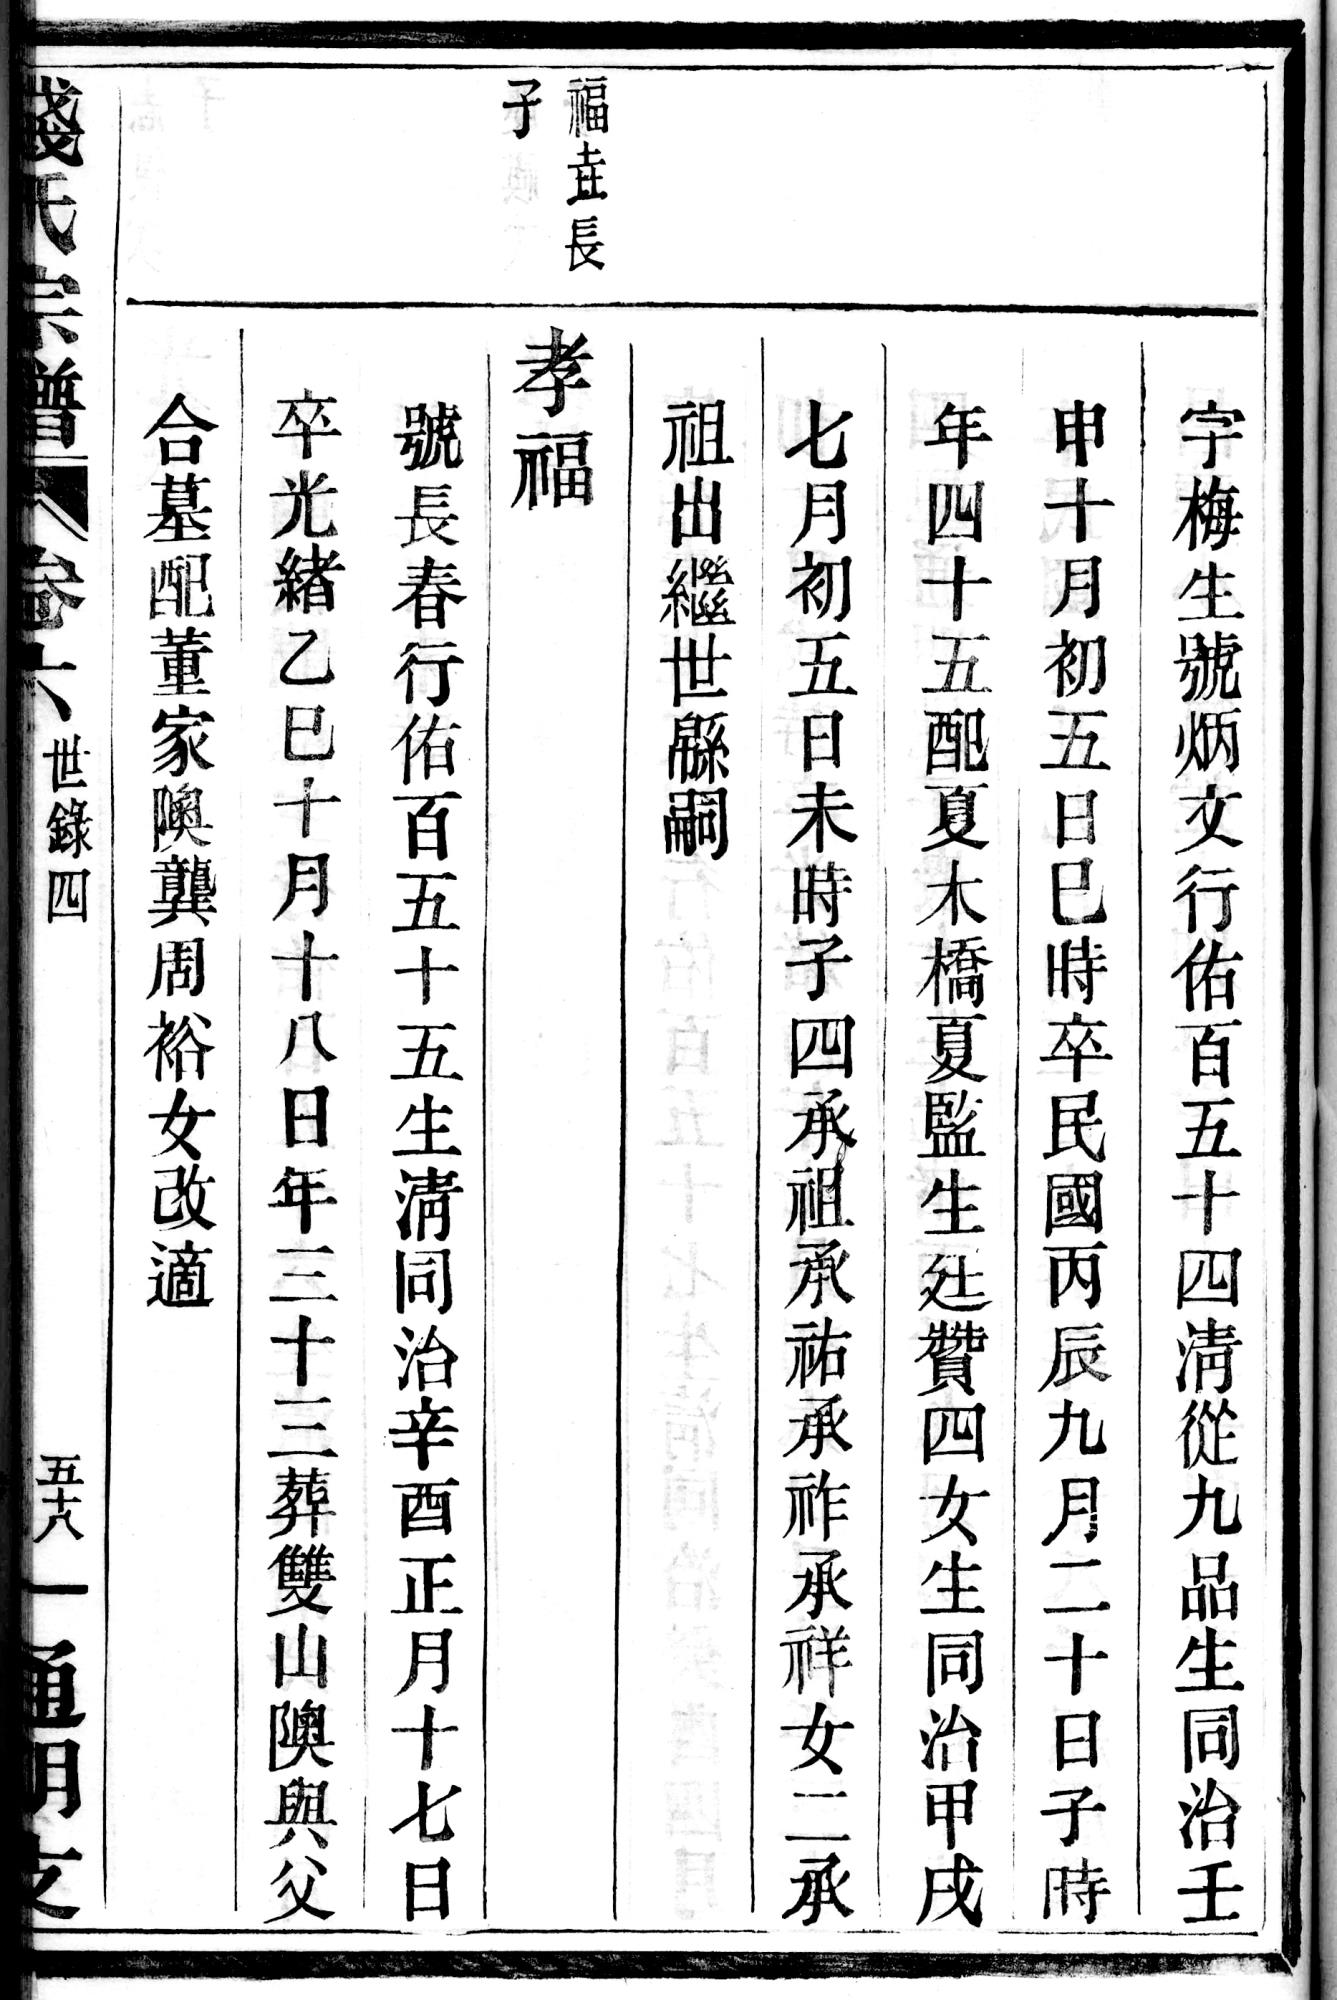 字梅生號炳文行佑百五十四清從九品生同治壬
申十月初五日巳時卒民國丙辰九月二十日子時
年四十五配夏木橋夏監生廷贊四女生同治甲戌
七月初五日未時子四承祖承祐承祚承祥女二承
祖出繼世緜嗣
福壵長
子
孝福
號長春行佑百五十五生清同治辛酉正月十七日
卒光緒乙巳十月十八日年三十三葬雙山隩與父
合墓配董家隩龔周裕女改適
錢氏宗譜
卷六
世錄四
五十八
通明支